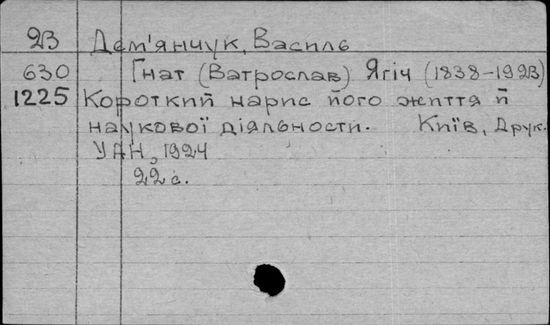 23 Дем'янчук, Василь
630 Гнат (Ватрослав) Ягіч (1838-1923)
1225 Короткий нарис його життя й
наукової діяльности. Київ, Друк.
УАН, 1924
22 с.